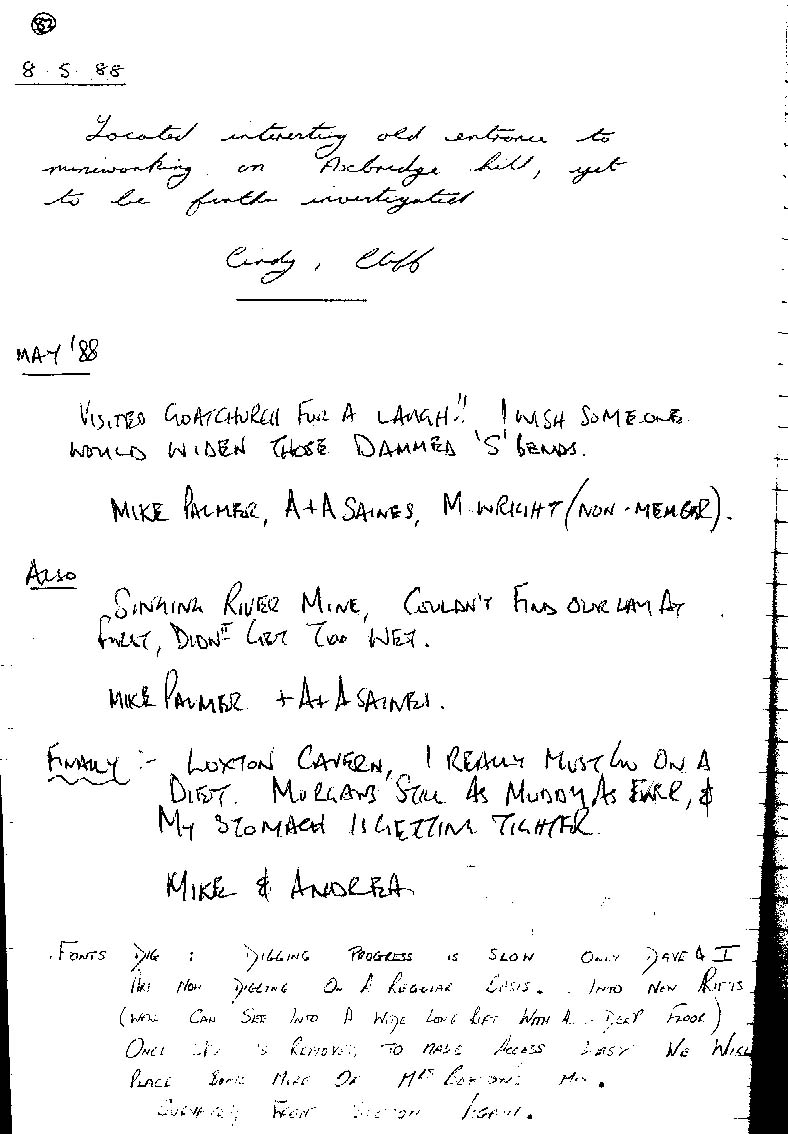 82
8.5.88
Located interesting old entrance to
mineworking on Axbridge hill, yet
to be further investigated
Cindy, Cliff
MAY '88
VISITED GOATCHURCH FOR A LAUGH!! I WISH SOMEONE
WOULD WIDEN THOSE DAMMED 'S' BENDS.
MIKE PALMER, A+A SAINES, M WRIGHT (NON-MEMBER).
ALSO
SINKING RIVER MINE, COULDN'T FIND OUR WAY AT
FIRST, DIDN'T GET TOO WET.
MIKE PALMER + A+A SAINES.
FINALLY :- LUXTON CAVERN, I REALLY MUST GO ON A
DIET. MORGANS STILL AS MUDDY AS EVER, &
MY STOMACH IS GETTING TIGHTER.
MIKE & ANDREA
FONTS DIG : DIGGING PROGRESS IS SLOW ONLY DAVE & I
ARE NOW DIGGING ON A REGULAR BASIS. INTO NEW RIFTS
(WE CAN SEE INTO A WIDE LONG RIFT WITH A DEEP FLOOR)
ONCE IS REMOVED TO MAKE ACCESS EASY WE WILL
PLACE SOME MORE OF
FROM AGAIN.